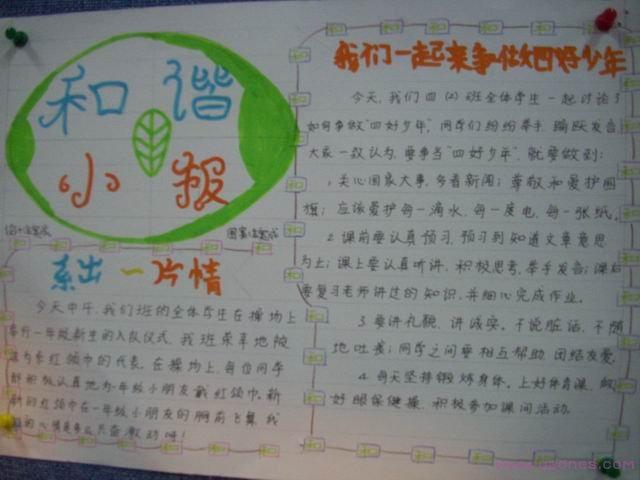 和谐
小报
系出一片情
今天中午,我们班的全体学生在操场上
举行一年级新生的入队仪式,我班荣幸地被
选为系红领巾的代表。在操场上,每位同学
都积极认真地为一年级小朋友戴红领巾。新
新的红领巾在一年级小朋友的胸前飞舞,我
们的心情是多么兴奋激动呀!
我们一起来争做四好少年
今天,我们四(2)班全体学生一起讨论了
如何争做"四好少年",同学们纷纷举手,踊跃发言,
大家一致认为,要争当"四好少年",就要做到:
1.关心国家大事,多看新闻;尊敬和爱护国
旗;应该爱护每一滴水、每一度电、每一张纸。
2.课前要认真预习,预习到知道文章意思
为止;课上要认真听讲,积极思考,举手发言;课后
要复习老师讲过的知识,并细心完成作业。
3.要讲礼貌、讲诚实。不说脏话、不随
地吐痰;同学之间要相互帮助、团结友爱。
4.每天坚持锻炼身体。上好体育课,做
好眼保健操,积极参加课间活动。